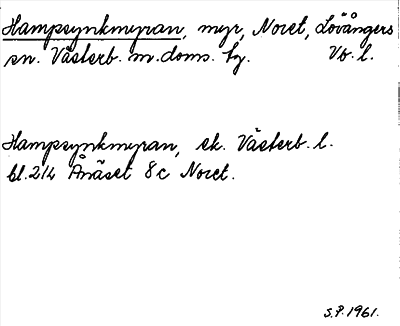 Hampsynkmyran, myr, Noret, Lövångers
sn. Västerb. m.doms. tg. Vb. l.
Hampsynkmyran, ek. Västerb. l.
bl. 214 Ånäset 8c Noret.
S.P. 1961.